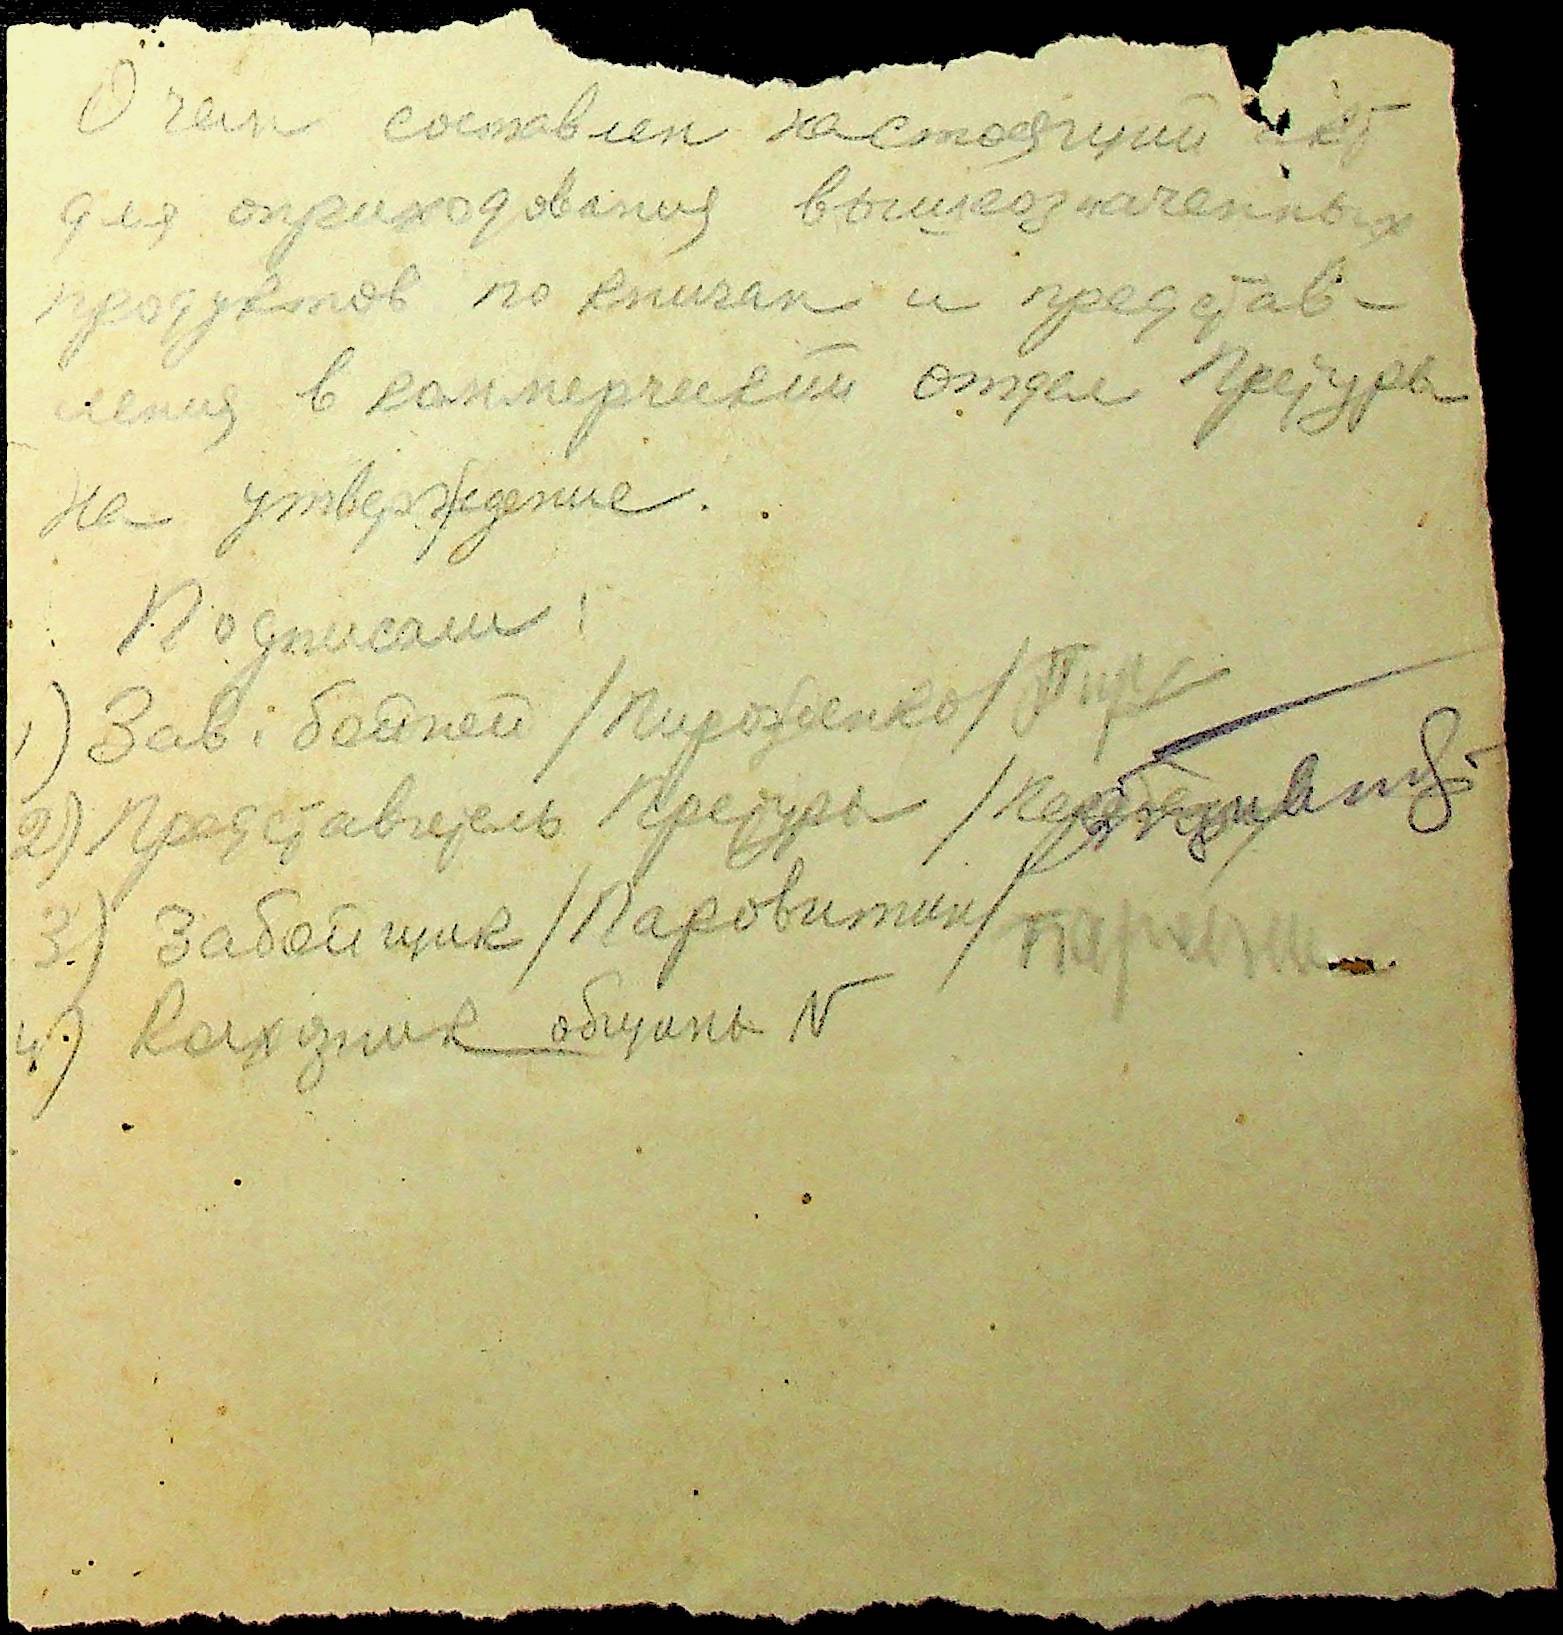 О чем составлен настоящий акт
для оприходования вышеозначенных
продуктов по книгам и представ-
ления в коммерческий отдел Претуры
на утверждение.
Подписали:
1) Зав. бойней /Пироженко/
2) Представитель Претуры /
3.) Забойщик /Паровитин/
4.) Колхозник общины N